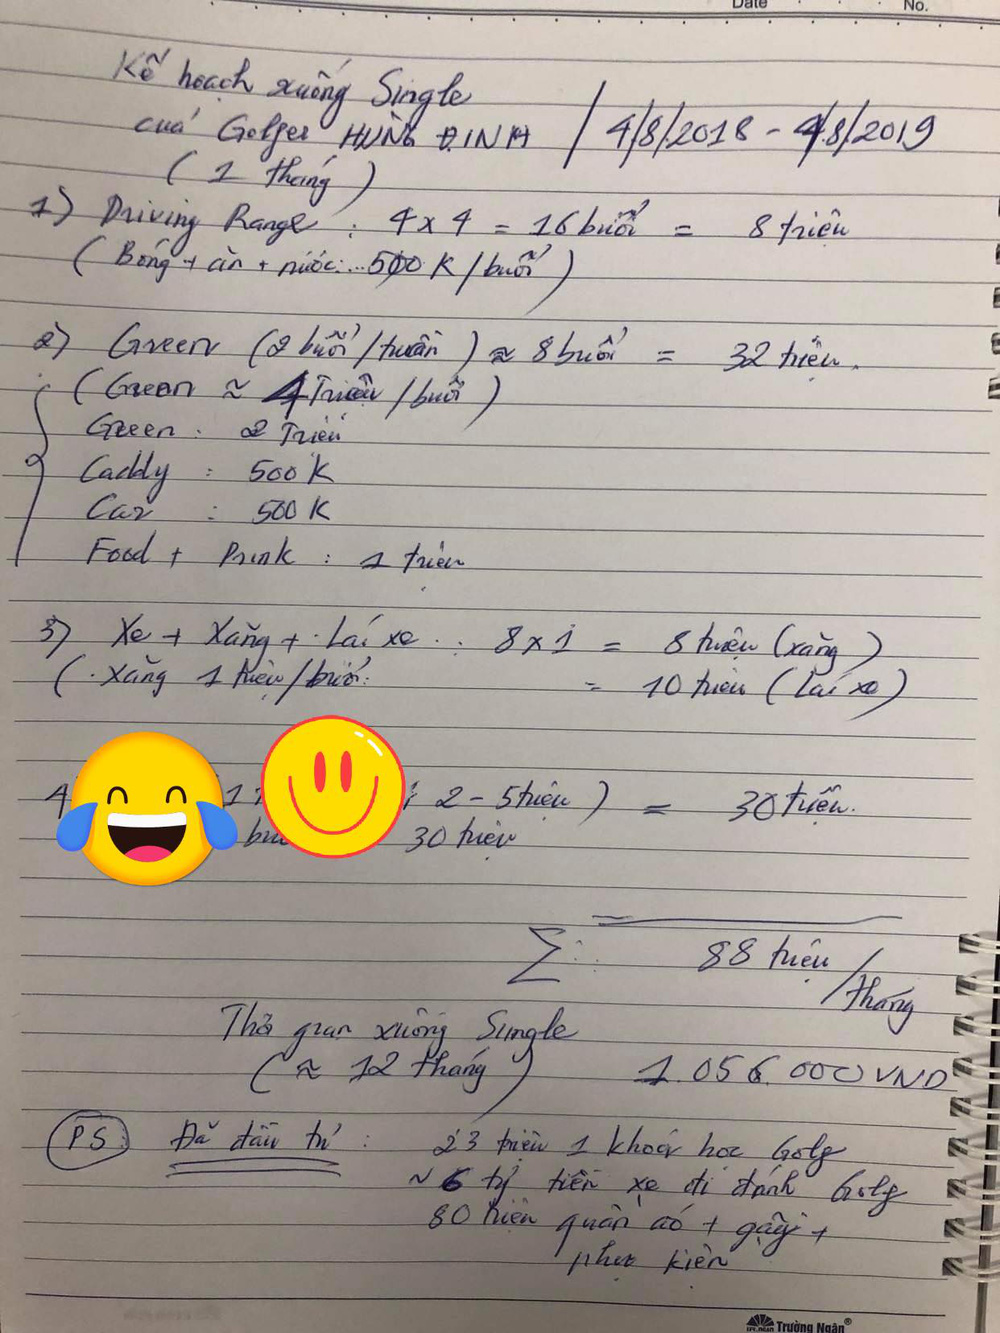 Date No.
Kế hoạch xuống Single
của Golfer HÙNG ĐINH / 4/8/2018 - 4/8/2019
( 1 tháng )
1) Driving Range : 4 x 4 = 16 buổi = 8 triệu
( Bóng + ăn + nước: .. 500 K / buổi )
2) Green (2 buổi / tuần ) ≈ 8 buổi = 32 triệu.
( Green ≈ 4 Triệu / buổi )
Green : 2 Triệu
Caddy : 500 K
Car : 500 K
Food + Drink : 1 triệu
3) Xe + Xăng + Lái xe : 8 x 1 = 8 triệu (xăng)
( Xăng 1 triệu / buổi = 10 triệu ( Lái xe )
4 1 : 2 - 5 triệu ) = 30 triệu.
30 triệu
Σ : 88 triệu / tháng
Thời gian xuống Single
( ≈ 12 tháng ) 1.056.000 VND
PS Đã đầu tư : 23 triệu 1 khoá học Golf
~ 6 tỷ tiền xe đi đánh Golf
80 triệu quần áo + gậy +
phụ kiện
Trường Ngân®